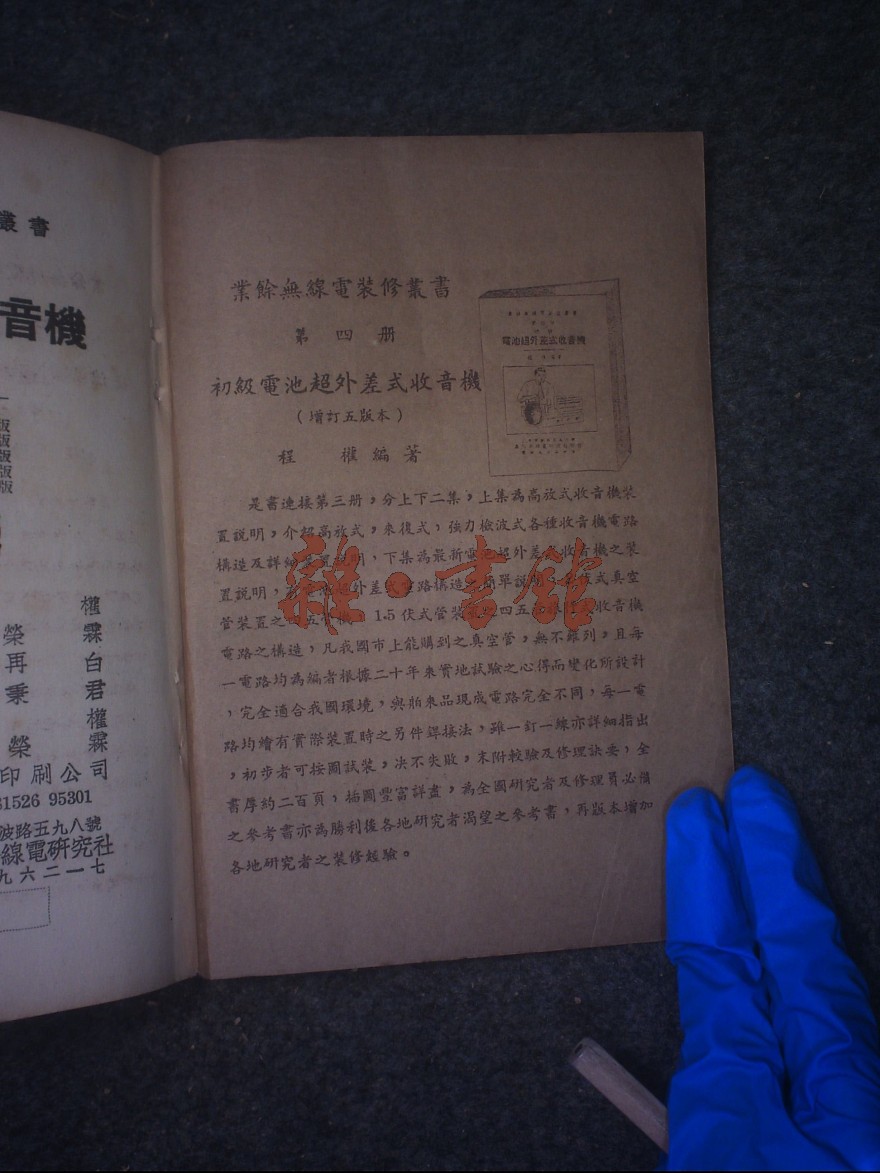 叢書
音機
版
版
版
版
版
權
榮 霖
再 白
秉 君
權
榮 霖
印刷公司
81526 95301
波路五九八號
線電研究社
九六二一七
業餘無線電裝修叢書
第四册
初級電池超外差式收音機
(增訂五版本)
程權編著
電池超外差式收音機
是書連接第三册，分上下二集，上集為高放式收音機裝
置説明，介紹高放式，來復式，強力檢波式各種收音機電路
構造及詳細裝置説明，下集為最新電池超外差式收音機之裝
置説明，超外差式電路構造之簡單説明，式真空
管裝置之四五管機，1.5伏式管裝置之四五收音機
電路之構造，凡我國市上能購到之真空管，無不羅列，且每
一電路均為編者根據二十年來實地試驗之心得而變化所設計
，完全適合我國環境，與舶來品現成電路完全不同，每一電
路均繪有實際裝置時之另件銲接法，雖一釘一線亦詳細指出
，初步者可按圖試裝，决不失敗，末附校驗及修理訣要，全
書厚約二百頁，插圖豐富詳盡，為全國研究者及修理員必備
之參考書亦為勝利後各地研究者渴望之參考書，再版本增加
各地研究者之裝修經驗。
雜·書館